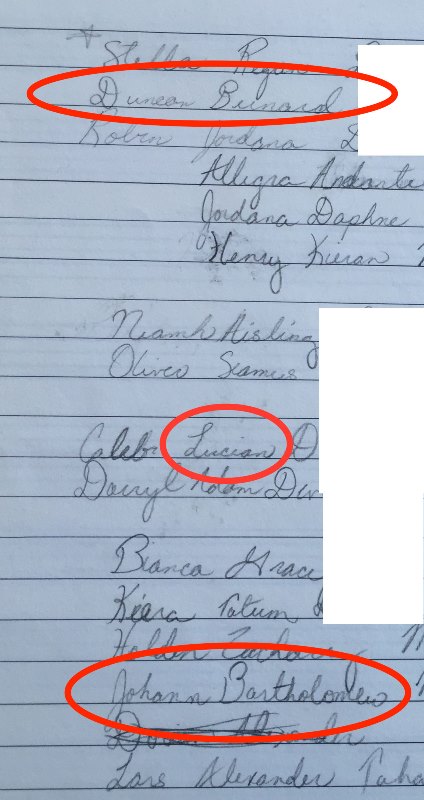 Stella Regan
Duncan Bernard
Robin Jordana
Allegra Andante
Jordana Daphne
Henry Kieran
Niamh Aisling
Oliver Seamus
Caleb Lucian D
Darryl Adam Dev
Bianca Grace
Kiera Tatum
Holden Zachary
Johann Bartholomew
Alexander
Lars Alexander Taha